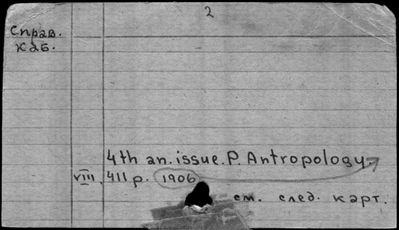 2
Справ.
каб.
4th an. issue. P. Antropology.
VIII, 411 p. 1906
см. след. карт.